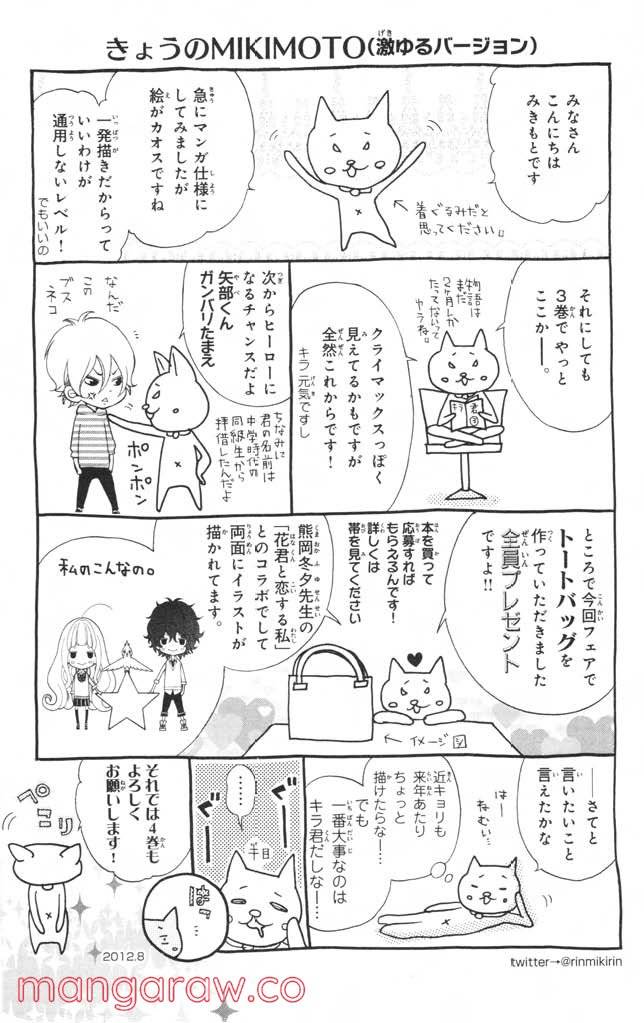 きょうのMIKIMOTO(激ゆるバージョン)
みなさん
こんにちは
みきもとです
←着ぐるみだと
思ってください。
急にマンガ仕様に
してみましたが
絵がカオスですね
一発描きだからって
いいわけが
通用しないレベル!
でもいいの
それにしても
3巻でやっと
ここか──。
物語は
まだ
2ヶ月しか
たってないって
ヤラね。
キラ君③
クライマックスっぽく
見えてるかもですが
全然これからです!
キラ元気ですし
次からヒーローに
なるチャンスだよ
矢部くん
ガンバリたまえ
ちなみに
君の名前は
中学時代の
同級生から
拝借したんだよ
なんだ
この
ブス
ネコ
ポンポン
ところで今回フェアで
トートバッグを
作っていただきました
全員プレゼント
ですよ!!
本を買って
応募すれば
もらえるんです!
詳しくは
帯を見てください
←イメージ図
熊岡冬夕先生の
「花君と恋する私」
とのコラボでして
両面にイラストが
描かれてます。
私のこんなの。
──さてと
言いたいこと
言えたかな
はー
ねむい…
近キョリも
来年あたり
ちょっと
描けたらなー…
でも
一番大事なのは
キラ君だしなー…
……
半目
はっ
それでは4巻も
よろしく
お願いします!
ペコリ
2012.8
twitter→@rinmikirin
mangaraw.co